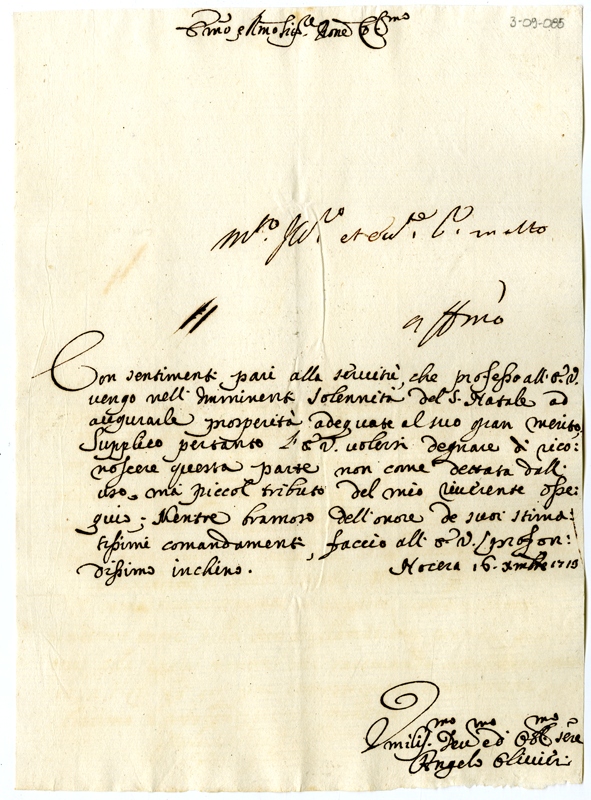 3-09-085
Con sentimenti pari alla servitù, che professo all' E. V.
vengo nell' imminenti Solennità del S. Natale ad
augurarle prosperità adeguate al suo gran merito,
Supplico pertanto l' E. V. volersi degnare di rico:
noscere questa parte non come dettata dall'
uso, ma piccol tributo del mio riverente osse:
quio; Mentre bramoso dell' onore de suoi stima:
tissimi comandamenti, faccio all' E. V. profon:
dissimo inchino. Nocera 16. Xmbre 1713
Umilis.mo Dev.mo ed Obb.mo Ser.re
Angelo Olivieri